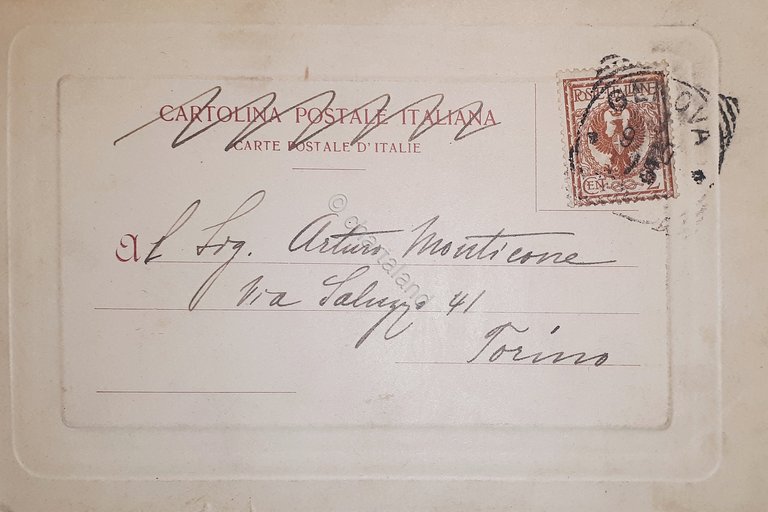 CARTOLINA POSTALE ITALIANA
CARTE POSTALE D'ITALIE
POSTE ITALIANE
CEN. 2
GENOVA
9
Al Sig. Arturo Monticone
Via Saluzzo 41
Torino
© chartaland